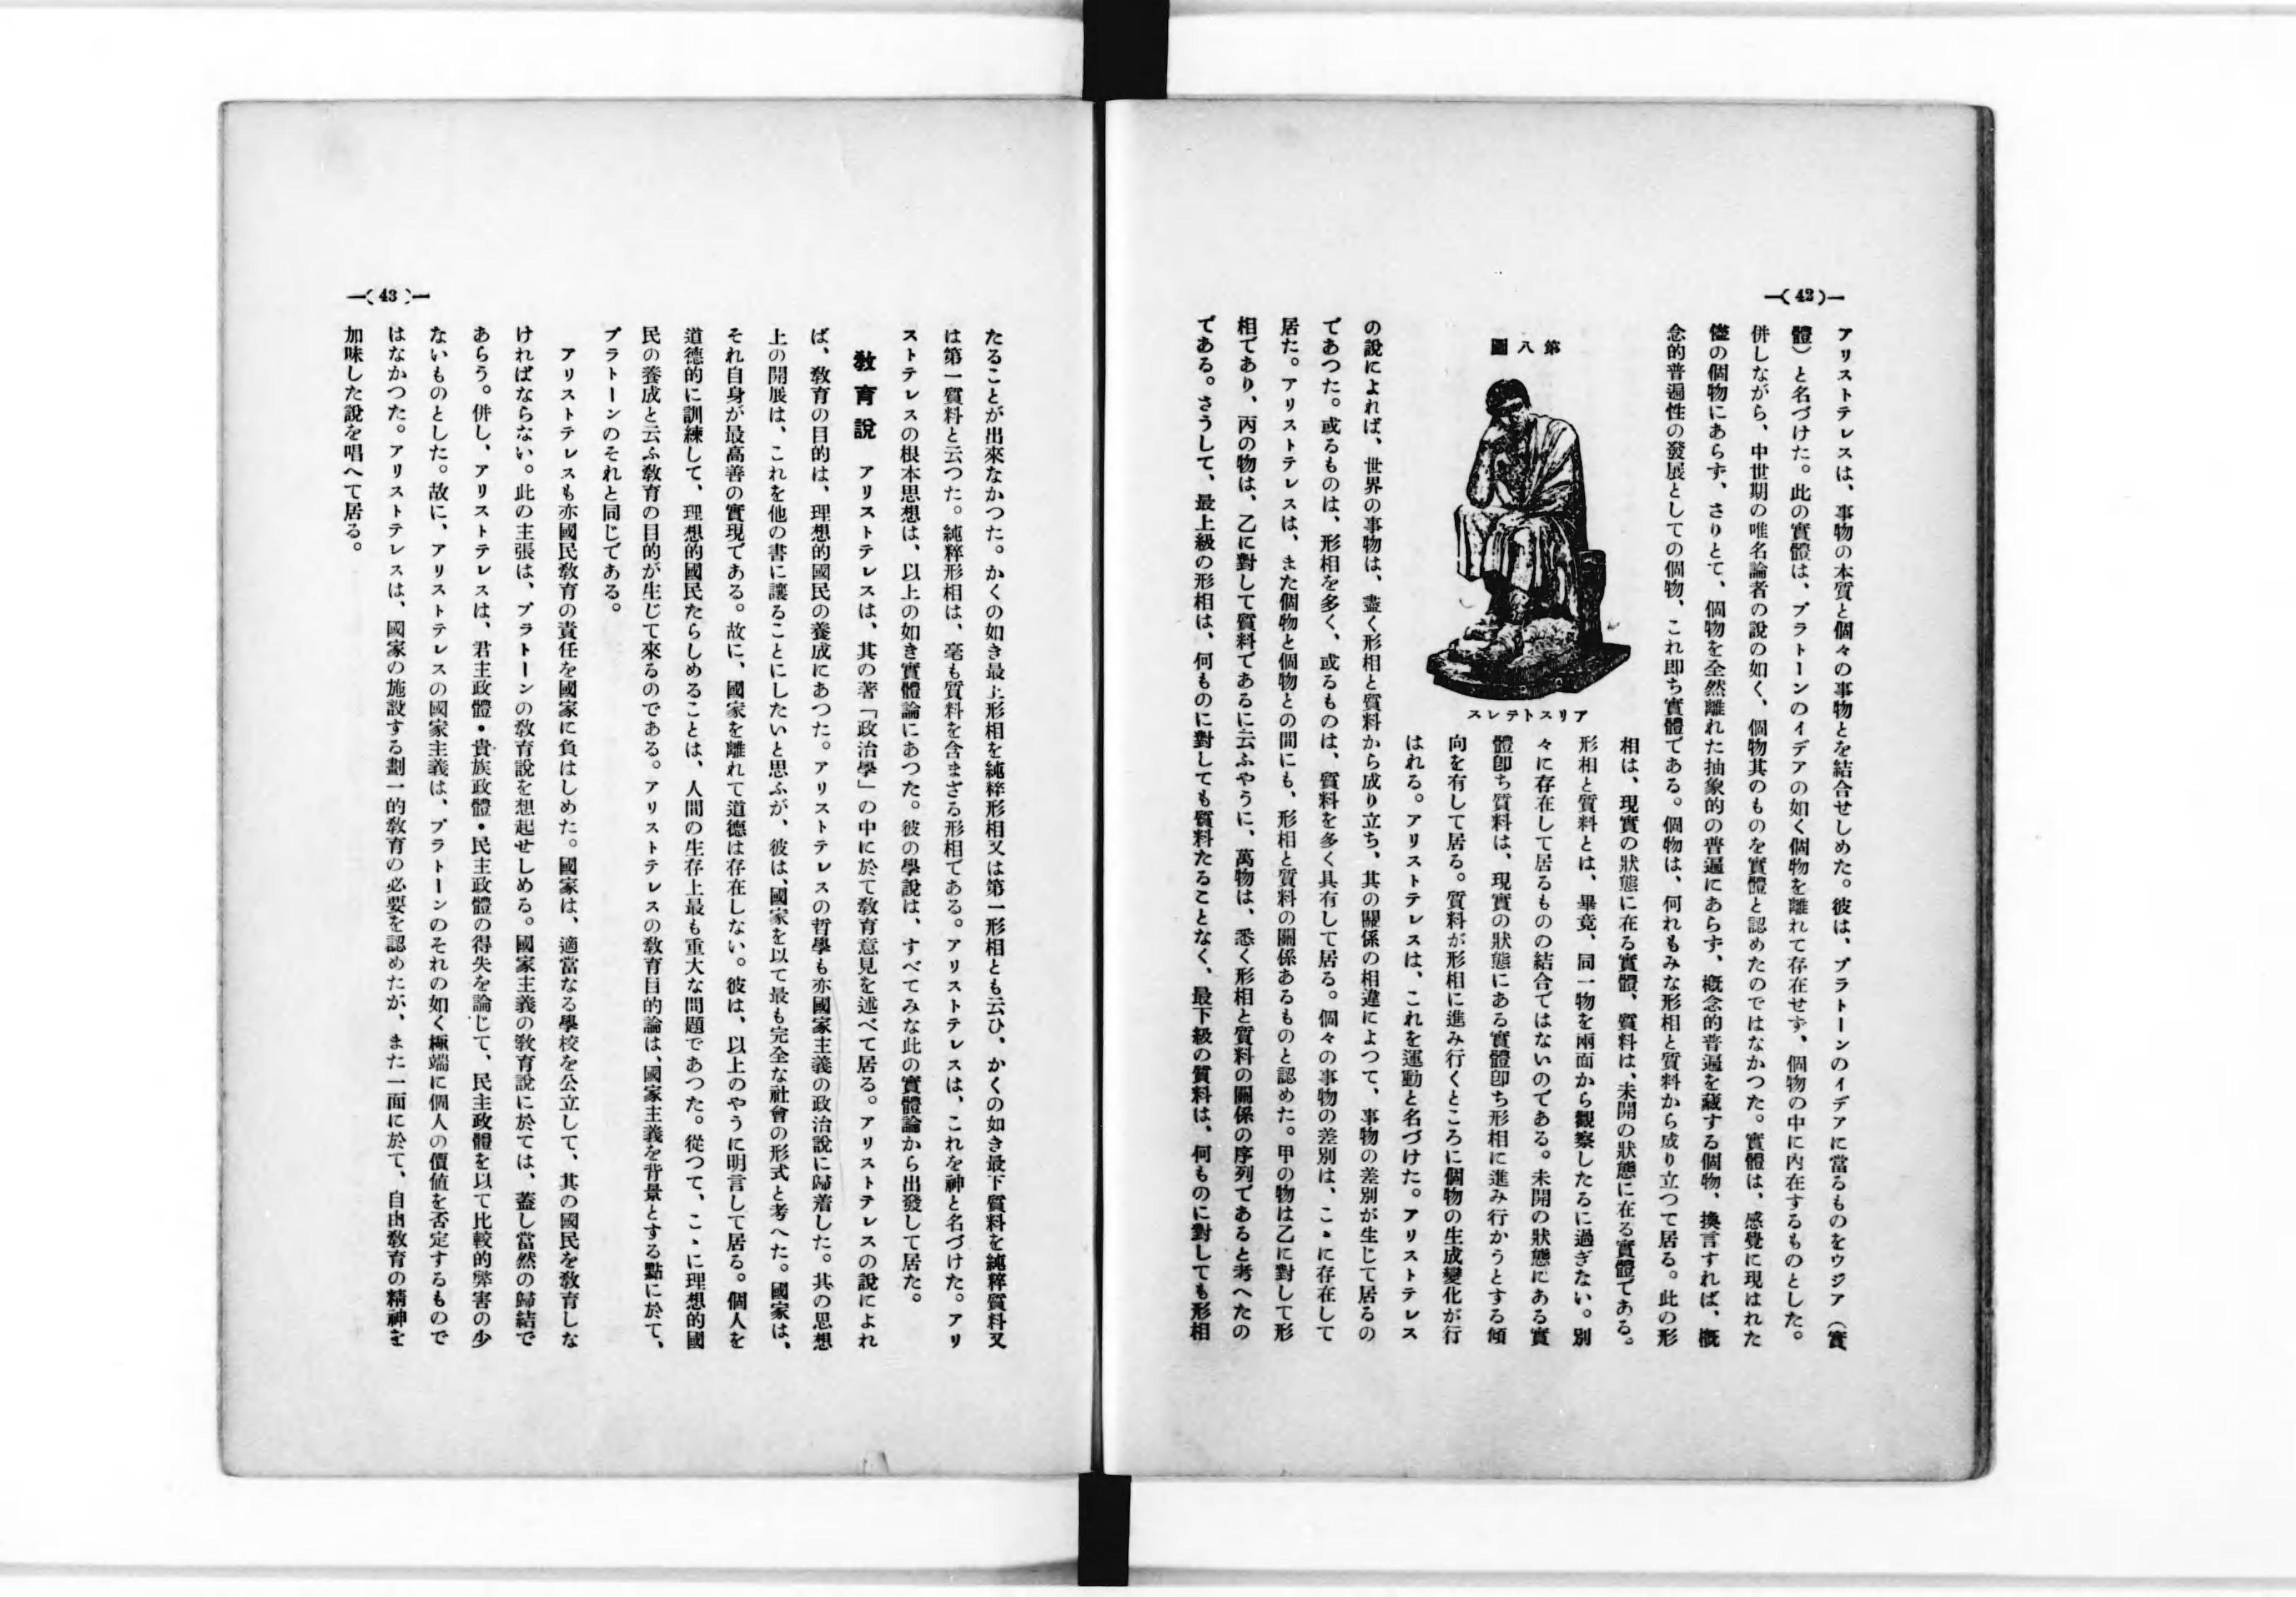 —( 42 )—
アリストテレスは、事物の本質と個々の事物とを結合せしめた。彼は、プラトーンのイデアに當るものをウジア（實
體）と名づけた。此の實體は、プラトーンのイデアの如く個物を離れて存在せず、個物の中に內在するものとした。
併しながら、中世期の唯名論者の說の如く、個物其のものを實體と認めたのではなかつた。實體は、感覺に現はれた
儘の個物にあらず、さりとて、個物を全然離れた抽象的の普遍にあらず、槪念的普遍を藏する個物、換言すれば、槪
念的普遍性の發展としての個物、これ卽ち實體である。個物は、何れもみな形相と質料から成り立つて居る。此の形
第八圖
アリストテレス
相は、現實の狀態に在る實體、質料は、未開の狀態に在る實體である。
形相と質料とは、畢竟、同一物を兩面から觀察したるに過ぎない。別
々に存在して居るものの結合ではないのである。未開の狀態にある實
體卽ち質料は、現實の狀態にある實體卽ち形相に進み行かうとする傾
向を有して居る。質料が形相に進み行くところに個物の生成變化が行
はれる。アリストテレスは、これを運動と名づけた。アリストテレス
の說によれば、世界の事物は、盡く形相と質料から成り立ち、其の關係の相違によつて、事物の差別が生じて居るの
であつた。或るものは、形相を多く、或るものは、質料を多く具有して居る。個々の事物の差別は、こゝに存在して
居た。アリストテレスは、また個物と個物との間にも、形相と質料の關係あるものと認めた。甲の物は乙に對して形
相であり、丙の物は、乙に對して質料であるに云ふやうに、萬物は、悉く形相と質料の關係の序列であると考へたの
である。さうして、最上級の形相は、何ものに對しても質料たることなく、最下級の質料は、何ものに對しても形相
—( 43 )—
たることが出來なかつた。かくの如き最上形相を純粹形相又は第一形相とも云ひ、かくの如き最下質料を純粹質料又
は第一質料と云つた。純粹形相は、毫も質料を含まざる形相である。アリストテレスは、これを神と名づけた。アリ
ストテレスの根本思想は、以上の如き實體論にあつた。彼の學說は、すべてみな此の實體論から出發して居た。
敎育說　アリストテレスは、其の著「政治學」の中に於て敎育意見を述べて居る。アリストテレスの說によれ
ば、敎育の目的は、理想的國民の養成にあつた。アリストテレスの哲學も亦國家主義の政治說に歸着した。其の思想
上の開展は、これを他の書に讓ることにしたいと思ふが、彼は、國家を以て最も完全な社會の形式と考へた。國家は、
それ自身が最高善の實現である。故に、國家を離れて道德は存在しない。彼は、以上のやうに明言して居る。個人を
道德的に訓練して、理想的國民たらしめることは、人間の生存上最も重大な問題であつた。從つて、こゝに理想的國
民の養成と云ふ敎育の目的が生じて來るのである。アリストテレスの敎育目的論は、國家主義を背景とする點に於て、
プラトーンのそれと同じである。
アリストテレスも亦國民敎育の責任を國家に負はしめた。國家は、適當なる學校を公立して、其の國民を敎育しな
ければならない。此の主張は、プラトーンの敎育說を想起せしめる。國家主義の敎育說に於ては、蓋し當然の歸結で
あらう。併し、アリストテレスは、君主政體・貴族政體・民主政體の得失を論じて、民主政體を以て比較的弊害の少
ないものとした。故に、アリストテレスの國家主義は、プラトーンのそれの如く極端に個人の價値を否定するもので
はなかつた。アリストテレスは、國家の施設する劃一的敎育の必要を認めたが、また一面に於て、自由敎育の精神を
加味した說を唱へて居る。